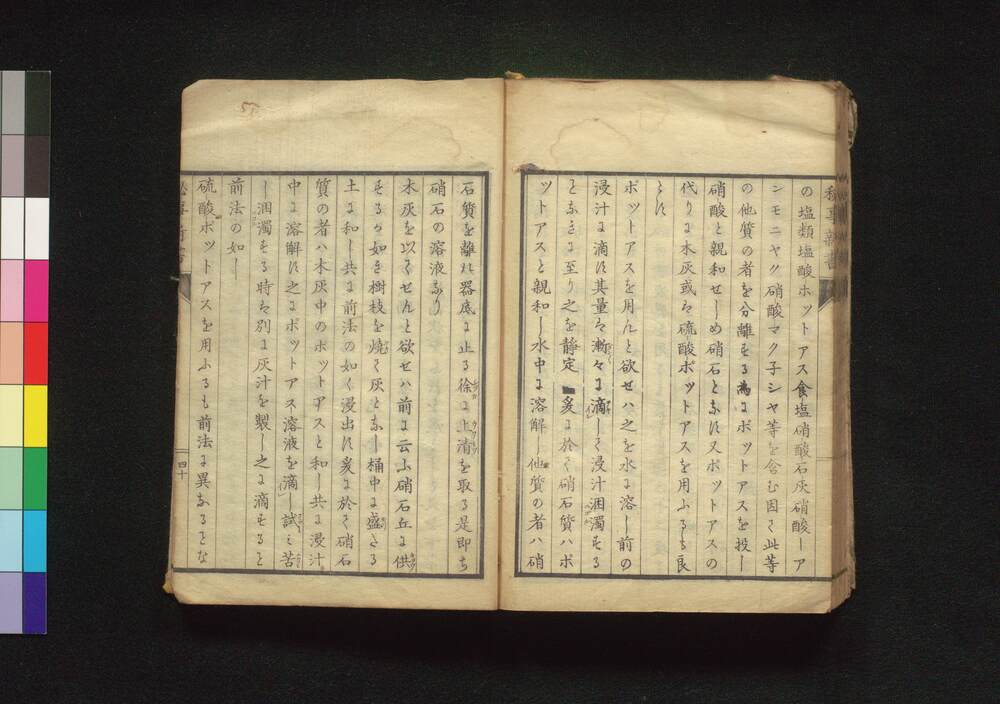 の塩類塩酸ホットアス食塩硝酸石灰硝酸ーア
ンモニヤク硝酸マク子シャ等を含む因て此等
の他質の者を分離する為にポットアスを投し
硝酸と親和せしめ硝石となす又ポットアスの
代りに木灰或は硫酸ポットアスを用ふるも良
とす
ポットアスを用んと欲せハ之を水に溶し前の
浸汁に滴す其量は漸々に滴して浸汁溷濁する
となきに至り之を静定 爰に於て硝石質ハポ
ットアスと親和し水中に溶解し他質の者ハ硝
石質を離れ器底に止る徐に上清を取る是即ち
硝石の溶液なり
木灰を以てせんと欲せハ前に云ふ硝石丘に供
する如き樹枝を焼て灰となし桶中に盛さる
土に和し共に前法の如く浸出す爰に於て硝石
質の者ハ木灰中のホットアスと和し共に浸汁
中に溶解す之にポットアス溶液を滴し試ミ苦
し溷濁する時は別に灰汁を製し之に滴すると
前法の如し
硫酸ポットアスを用ふるも前法に異なるとな
四十